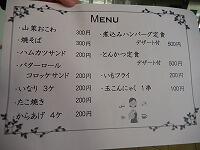 MENU
・山菜おこわ 300円
・焼そば 300円
・ハムカツサンド 200円
・バターロール
コロッケサンド 200円
・いなり 3ケ 200円
・たこ焼き 200円
・からあげ 4ケ 200円
・煮込みハンバーグ定食
デザート付 500円
・とんかつ定食
デザート付 500円
・いもフライ 200円
・玉こんにゃく 1串 100円